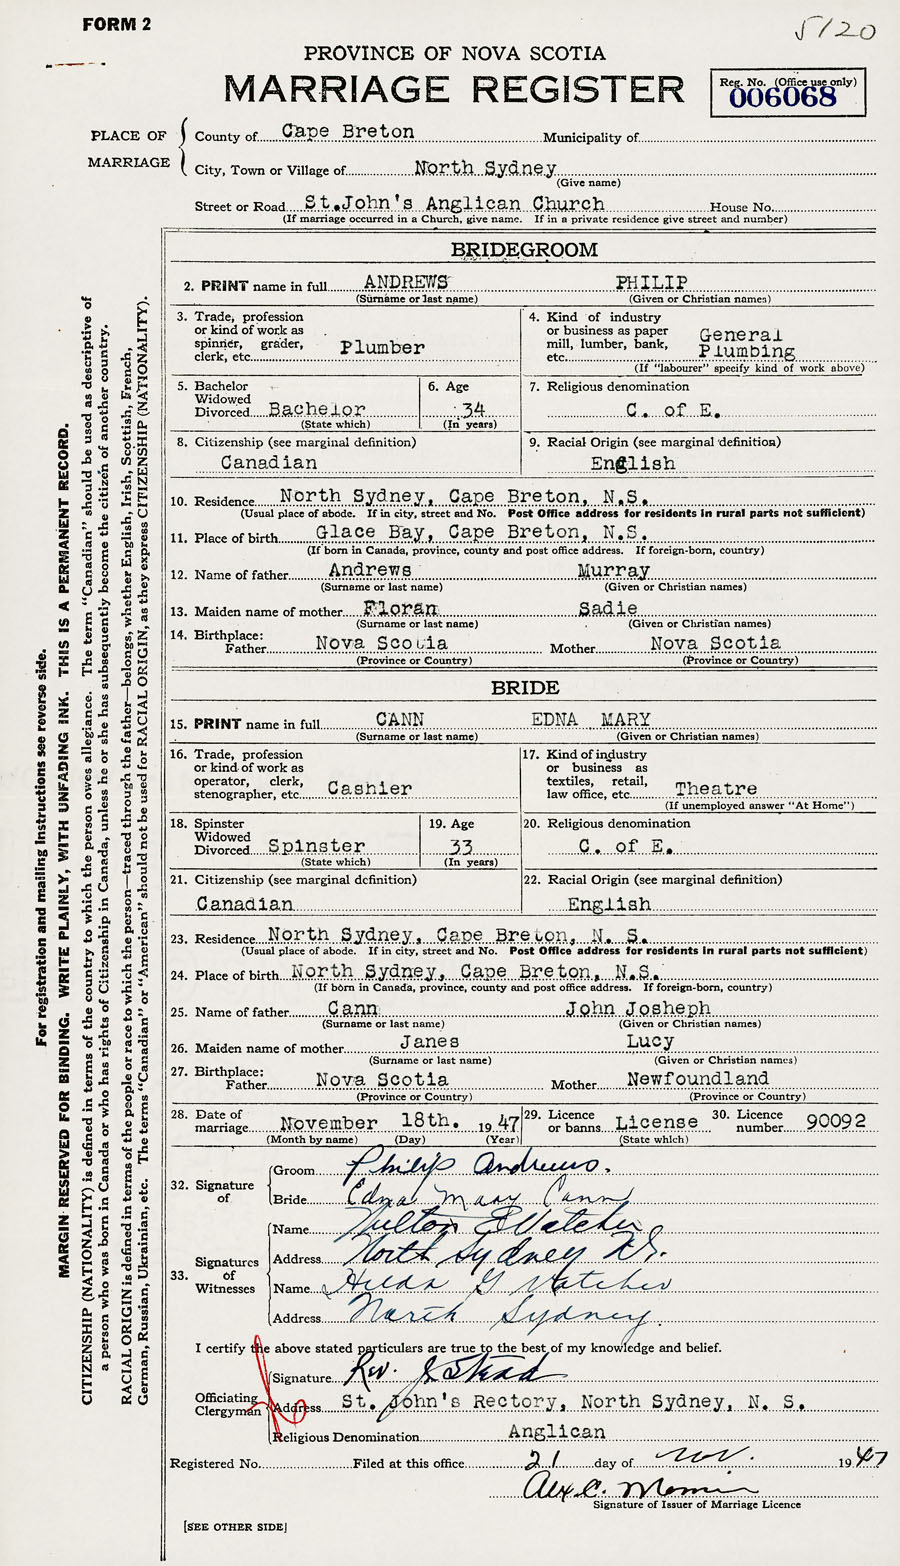 FORM 2
5120
PROVINCE OF NOVA SCOTIA
MARRIAGE REGISTER
Reg. No. (Office use only)
006068
PLACE OF MARRIAGE
County of Cape Breton Municipality of
City, Town or Village of North Sydney
(Give name)
Street or Road St.John's Anglican Church House No.
(If marriage occurred in a Church, give name. If in a private residence give street and number)
BRIDEGROOM
2. PRINT name in full ANDREWS PHILIP
(Surname or last name) (Given or Christian names)
3. Trade, profession
or kind of work as
spinner, grader,
clerk, etc. Plumber
4. Kind of industry
or business as paper
mill, lumber, bank,
etc. General Plumbing
(If "labourer" specify kind of work above)
5. Bachelor
Widowed
Divorced Bachelor
(State which)
6. Age
34
(In years)
7. Religious denomination
C. of E.
8. Citizenship (see marginal definition)
Canadian
9. Racial Origin (see marginal definition)
English
10. Residence North Sydney, Cape Breton, N.S.
(Usual place of abode. If in city, street and No. Post Office address for residents in rural parts not sufficient)
11. Place of birth Glace Bay, Cape Breton, N.S.
(If born in Canada, province, county and post office address. If foreign-born, country)
12. Name of father Andrews Murray
(Surname or last name) (Given or Christian names)
13. Maiden name of mother Floran Sadie
(Surname or last name) (Given or Christian names)
14. Birthplace:
Father Nova Scotia Mother Nova Scotia
(Province or Country) (Province or Country)
BRIDE
15. PRINT name in full CANN EDNA MARY
(Surname or last name) (Given or Christian names)
16. Trade, profession
or kind of work as
operator, clerk,
stenographer, etc. Cashier
17. Kind of industry
or business as
textiles, retail,
law office, etc. Theatre
(If unemployed answer "At Home")
18. Spinster
Widowed
Divorced Spinster
(State which)
19. Age
33
(In years)
20. Religious denomination
C. of E.
21. Citizenship (see marginal definition)
Canadian
22. Racial Origin (see marginal definition)
English
23. Residence North Sydney, Cape Breton, N. S.
(Usual place of abode. If in city, street and No. Post Office address for residents in rural parts not sufficient)
24. Place of birth North Sydney, Cape Breton, N.S.
(If born in Canada, province, county and post office address. If foreign-born, country)
25. Name of father Cann John Josheph
(Surname or last name) (Given or Christian names)
26. Maiden name of mother Janes Lucy
(Surname or last name) (Given or Christian names)
27. Birthplace:
Father Nova Scotia Mother Newfoundland
(Province or Country) (Province or Country)
28. Date of marriage November 18th. 1947
(Month by name) (Day) (Year)
29. Licence or banns License
(State which)
30. Licence number 90092
32. Signature of
Groom Philip Andrews.
Bride Edna Mary Cann
33. Signatures of Witnesses
Name Milton E Vatcher
Address North Sydney N.S.
Name Hilda G Vatcher
Address North Sydney.
I certify the above stated particulars are true to the best of my knowledge and belief.
Officiating Clergyman
Signature Rev. J. Stead
Address St. John's Rectory, North Sydney, N. S.
Religious Denomination Anglican
Registered No. Filed at this office 21 day of Nov. 1947
Alex C.
Signature of Issuer of Marriage Licence
[SEE OTHER SIDE]
For registration and mailing instructions see reverse side.
MARGIN RESERVED FOR BINDING. WRITE PLAINLY, WITH UNFADING INK. THIS IS A PERMANENT RECORD.
CITIZENSHIP (NATIONALITY) is defined in terms of the country to which the person owes allegiance. The term "Canadian" should be used as descriptive of
a person who was born in Canada or who has rights of Citizenship in Canada, unless he or she has subsequently become the citizen of another country.
RACIAL ORIGIN is defined in terms of the people or race to which the person—traced through the father—belongs, whether English, Irish, Scottish, French,
German, Russian, Ukrainian, etc. The terms "Canadian" or "American" should not be used for RACIAL ORIGIN, as they express CITIZENSHIP (NATIONALITY).